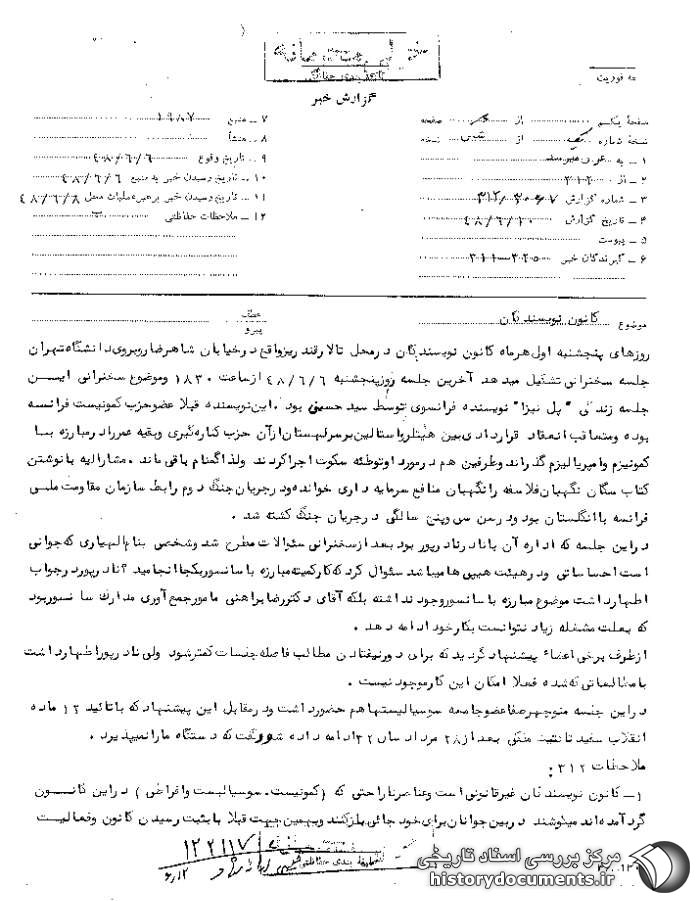 خیلی محرمانه
طبقه بندی حفاظتی
گزارش خبر
به فوریت
صفحه یکم از صفحه
نسخه شماره یک از نسخه
۱ ـ به
۲ ـ از ۳۱۲
۳ ـ شماره گزارش
۴ ـ تاریخ گزارش ۴۸/۶/۱۰
۵ ـ پیوست
۶ ـ گیرندگان خبر
۷ ـ منبع ۱۹۸۷
۸ ـ منشأ
۹ ـ تاریخ وقوع ۴۸/۶/۶
۱۰ ـ تاریخ رسیدن خبر به منبع ۴۸/۶/۶
۱۱ ـ تاریخ رسیدن خبر برهبر عملیات محل ۴۸/۶/۸
۱۲ ـ ملاحظات حفاظتی
موضوع کانون نویسندگان
عطف
پیرو
روزهای پنجشنبه اول هرماه کانون نویسندگان درمحل تالارقند ریزواقع درخیابان شاهرضاروبروی دانشگاه تهران
جلسه سخنرانی تشکیل میدهد آخرین جلسه روزپنجشنبه ۴۸/۶/۶ ازساعت ۱۸۳۰ وموضوع سخنرانی ایسن
جلسه زندگی "پل نیزا" نویسنده فرانسوی توسط سید حسینی بود . این نویسنده قبلا عضوحزب کمونیست فرانسه
بوده ومتعاقب انعقاد قراردادی بین هیتلرواستالین برسرلهستان ازآن حزب کناره گیری وبقیه عمررادرمبارزه بسا
کمونیزم وامپریالیزم گذراند وطرفین هم درمورد اوتوطئه سکوت اجراکردند ولذاگمنام باقی ماند . مشارالیه بانوشتن
کتاب سگان نگهبان فلاسفه رانگهبان منافع سرمایه داری خوانده ودرجریان جنگ دوم رابط سازمان مقاومت ملی
فرانسه باانگلستان بود ودرسن سی وپنج سالگی درجریان جنگ کشته شد .
دراین جلسه که اداره آن بانادرنادرپور بود بعد ازسخنرانی سئوالات مطرح شد وشخصی بنام الهیاری که جوانی
است احساساتی ودرهیئت هیپی هامیباشد سئوال کرد که کارکمیته مبارزه باسانسوربکجاانجامید ؟ نادرپوردرجواب
اظهارداشت موضوع مبارزه باسانسوروجود نداشته بلکه آقای دکتررضابراهنی مامورجمع آوری مدارک سانسوربود
که بعلت مشغله زیاد نتوانست بکارخود ادامه دهد .
ازطرف برخی اعضاء پیشنهاد گردید که برای دورنیفتادن مطالب فاصله جلسات کمترشود ولی نادرپوراظهارداشت
بامطالعاتی که شده فعلا امکان این کارموجود نیست .
دراین جلسه منوچهرصفاعضوجامعه سوسیالیستهاهم حضورداشت ودرمقابل این پیشنهاد که باتائید ۱۲ ماده
انقلاب سفید تائید متکی بعد از۲۸ مرداد سال ۳۲ادامه داده شود گفت که دستگاه مارانمیپذیرد .
ملاحظات ۳۱۲ :
۱ـ کانون نویسندگان غیرقانونی است وعناصرناراحتی که (کمونیست. سوسیالیست وافراطی ) دراین کانسون
گردآمده اند میکوشند دربین جوانان برای خود جائی بازکنند وبهمین جهت قبلا بابثبت رسیدن کانون وفعالیست
خیلی محرمانه
طبقه بندی حفاظتی
۱۲۲۱۱۷
۶/۱۲
مرکز بررسی اسناد تاریخی
historydocuments.ir